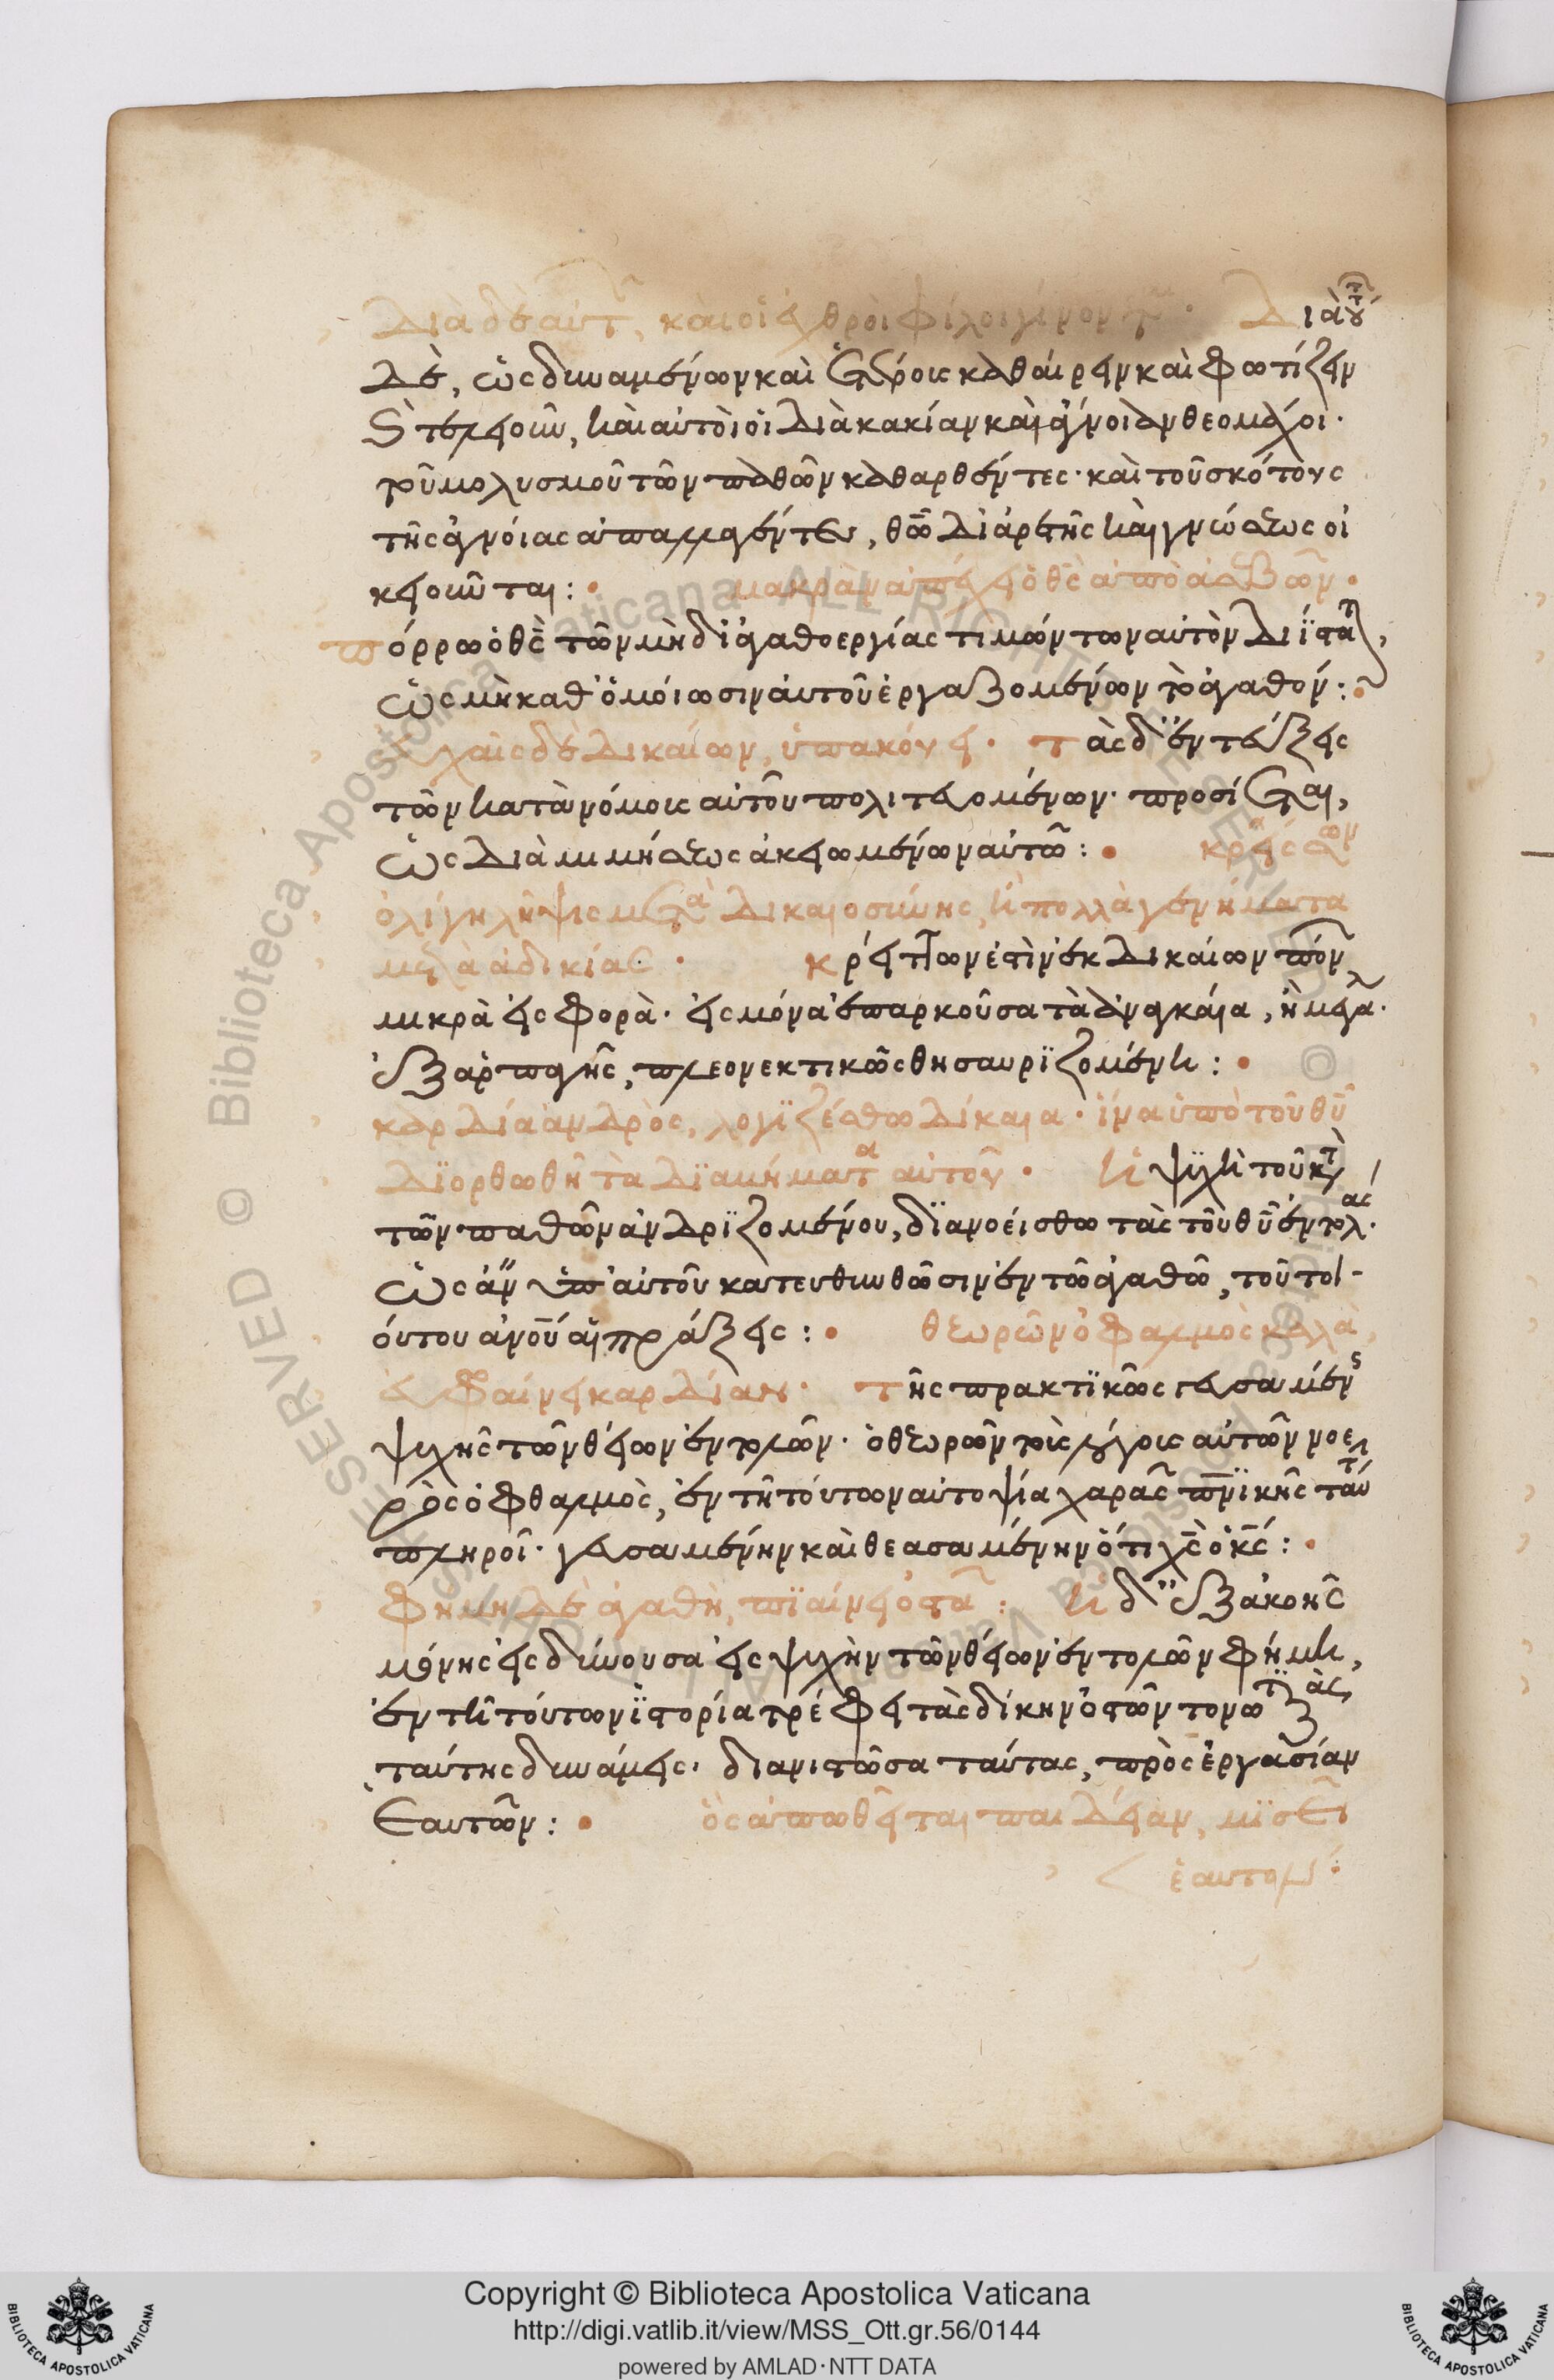 Διὰ δὲ αὐτ, καὶ οἱ ἐχθροὶ φίλοι γίνονται · Διὰ τού
δὲ, ὡς δυναμένων καὶ ἑτέροις καθαίρειν καὶ φωτίζειν
καὶ τελειοῦν, καὶ αὐτοὶ οἱ διὰ κακίαν καὶ ἄνοιαν θεομάχοι ·
τοῦ μολυσμοῦ τῶν παθῶν καθαρθέντες · καὶ τοῦ σκότους
τῆς ἀγνοίας ἀπαλλαγέντες, θῶ δι ἀρετῆς καὶ γνώσεως οἰ
κειοῦνται : · μακρὰν ἀπέχει ὁ θς ἀπὸ ἀσεβῶν ·
πόρρω ὁ θς τῶν μὴ δι ἀγαθοεργίας τιμώντων αὐτὸν διΐστατ,
ὡς μὴ καθ' ὁμοίωσιν αὐτοῦ ἐργαζομένων τὸ ἀγαθόν : ·
εὐχαῖς δὲ δικαίων, ὑπακούει · τὰς δ' ἐντεύξεις
τῶν κατὰ νόμοις αὐτοῦ πολιτευομένων · προσίεται,
ὡς διὰ μιμήσεως οἰκειωμένων αὐτῶ : · κρείσσων
ὀλίγη λῆψις μετὰ δικαιοσύνης, ἢ πολλὰ γενήματα
μετὰ ἀδικίας · κρείττων ἐστὶν ἐκ δικαίων πόν
μικρὰ εἰσφορὰ · εἰς μόνα ἐπαρκοῦσα τὰ ἀναγκαῖα, ἢ μεγαλ ·
ἐξ ἁρπαγῆς, πλεονεκτικῶς θησαυρϊζομένη : ·
καρδία ἀνδρὸς, λογϊζέσθω δίκαια · ἵνα ὑπὸ τοῦ θῦ
δϊορθωθῆ τὰ δϊαβήματα αὐτοῦ · ἡ ψϋχὴ τοῦ κατ
τῶν παθῶν ἀνδρϊζομένου, δϊανοείσθω τὰς τοῦ θῦ ἐντολάς ·
ὡς ἂν ὑπ' αὐτοῦ κατευθυνθῶσιν ἐν τῶ ἀγαθῶ, τοῦ τοι-
ούτου ἀνοῦ αἱ πράξεις : · θεωρῶν ὀφθαλμὸς καλὰ,
εὐφραίνει καρδίαν · τῆς πρακτϊκῶς γευσαμένης
ψυχῆς τῶν θείων ἐντολῶν · ὁ θεωρῶν τοῖς λόγοις αὐτῶν νοε
ρὸς ὀφθαλμὸς, ἐν τῆ τούτων αὐτοψία χαρᾶς πνϊκῆς ταύτ
πληροῖ · γευσαμένην καὶ θεασαμένην ὅτι χς ὁ κς : ·
φήμη δὲ ἀγαθὴ, πϊαίνει ὀστᾶ : ἡ δ' ἐξ ἀκοῆς
μόνης εἰσδύνουσα εἰς ψυχὴν τῶν θείων ἐντολῶν φήμη,
ἐν τῆ τούτων ἱστορία τρέφει τὰς δίκην ὀστῶν τονωτϊκὰς
ταύτης δυνάμεις · διανιστῶσα ταύτας, πρὸς ἐργασίαν
ἑαυτῶν : · ὃς ἀπωθεῖται παιδείαν, μϊσεῖ
ἑαυτον ·
Copyright © Biblioteca Apostolica Vaticana
http://digi.vatlib.it/view/MSS_Ott.gr.56/0144
powered by AMLAD·NTT DATA
BIBLIOTECA APOSTOLICA VATICANA
BIBLIOTECA APOSTOLICA VATICANA